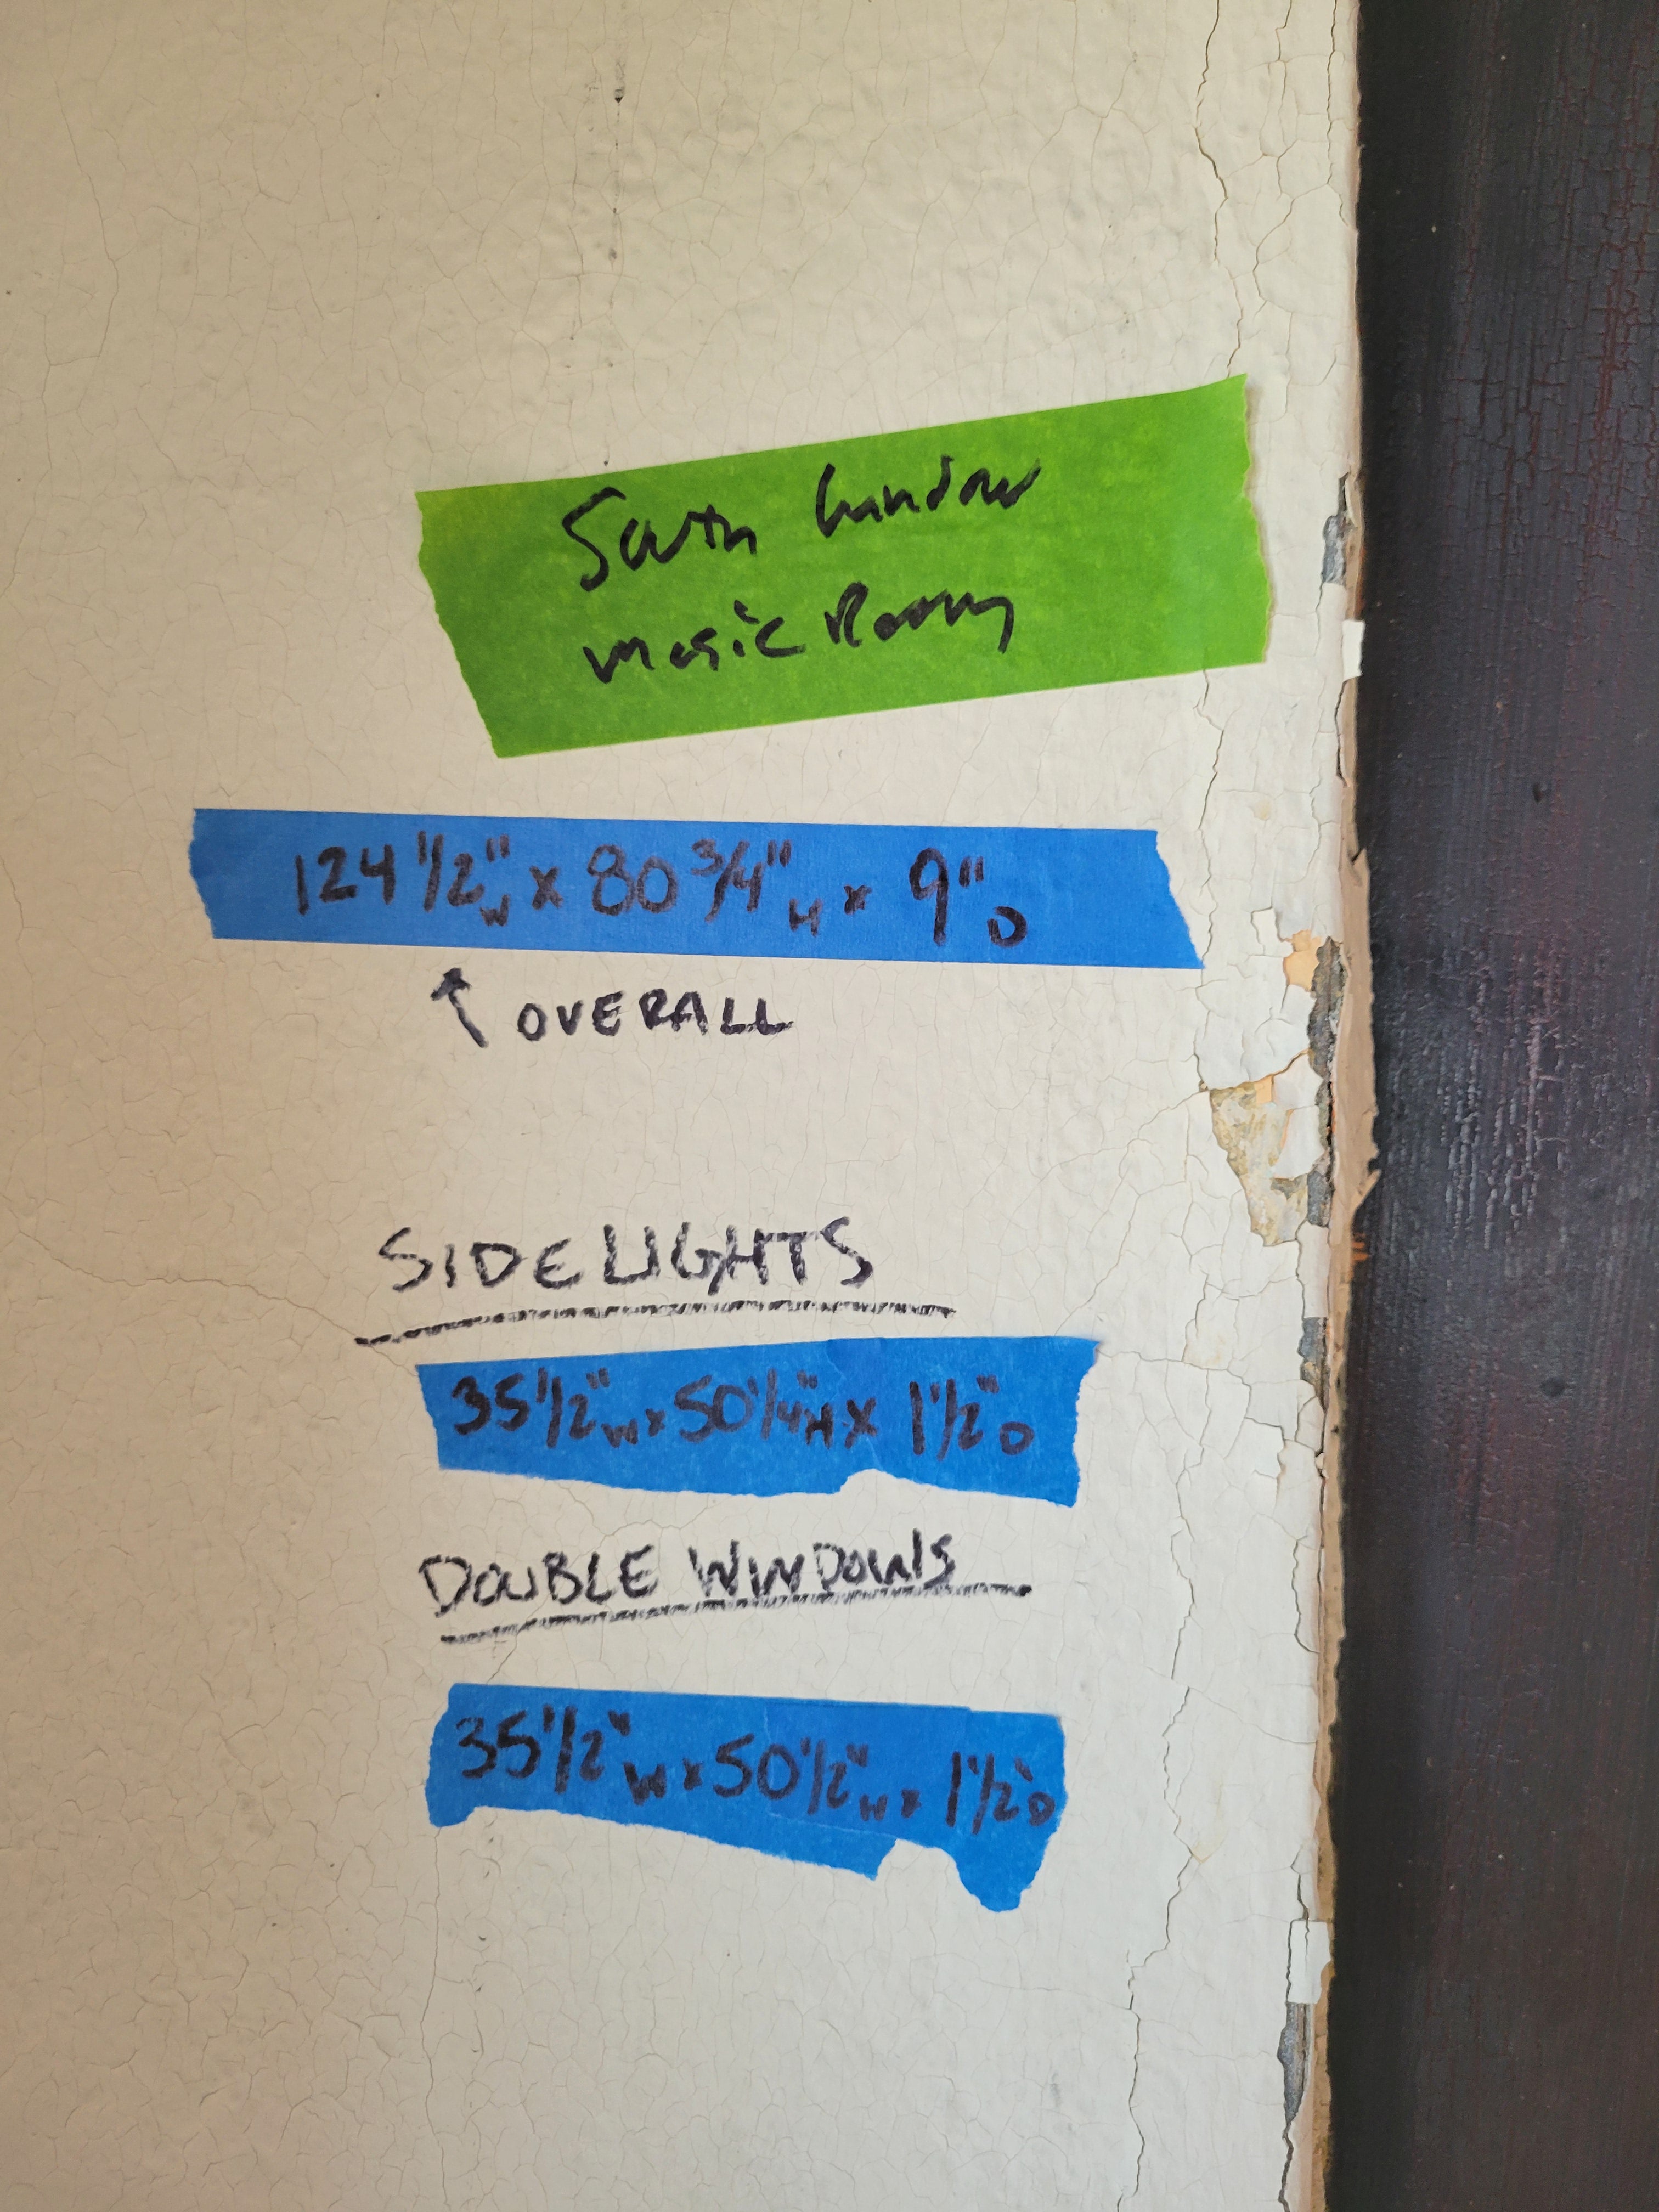 South Window
Music Room
124 1/2" W x 80 3/4" H x 9" D
↑ OVERALL
SIDELIGHTS
35 1/2" W x 50 1/4" H x 1 1/2" D
DOUBLE WINDOWS
35 1/2" W x 50 1/2" H x 1 1/2" D